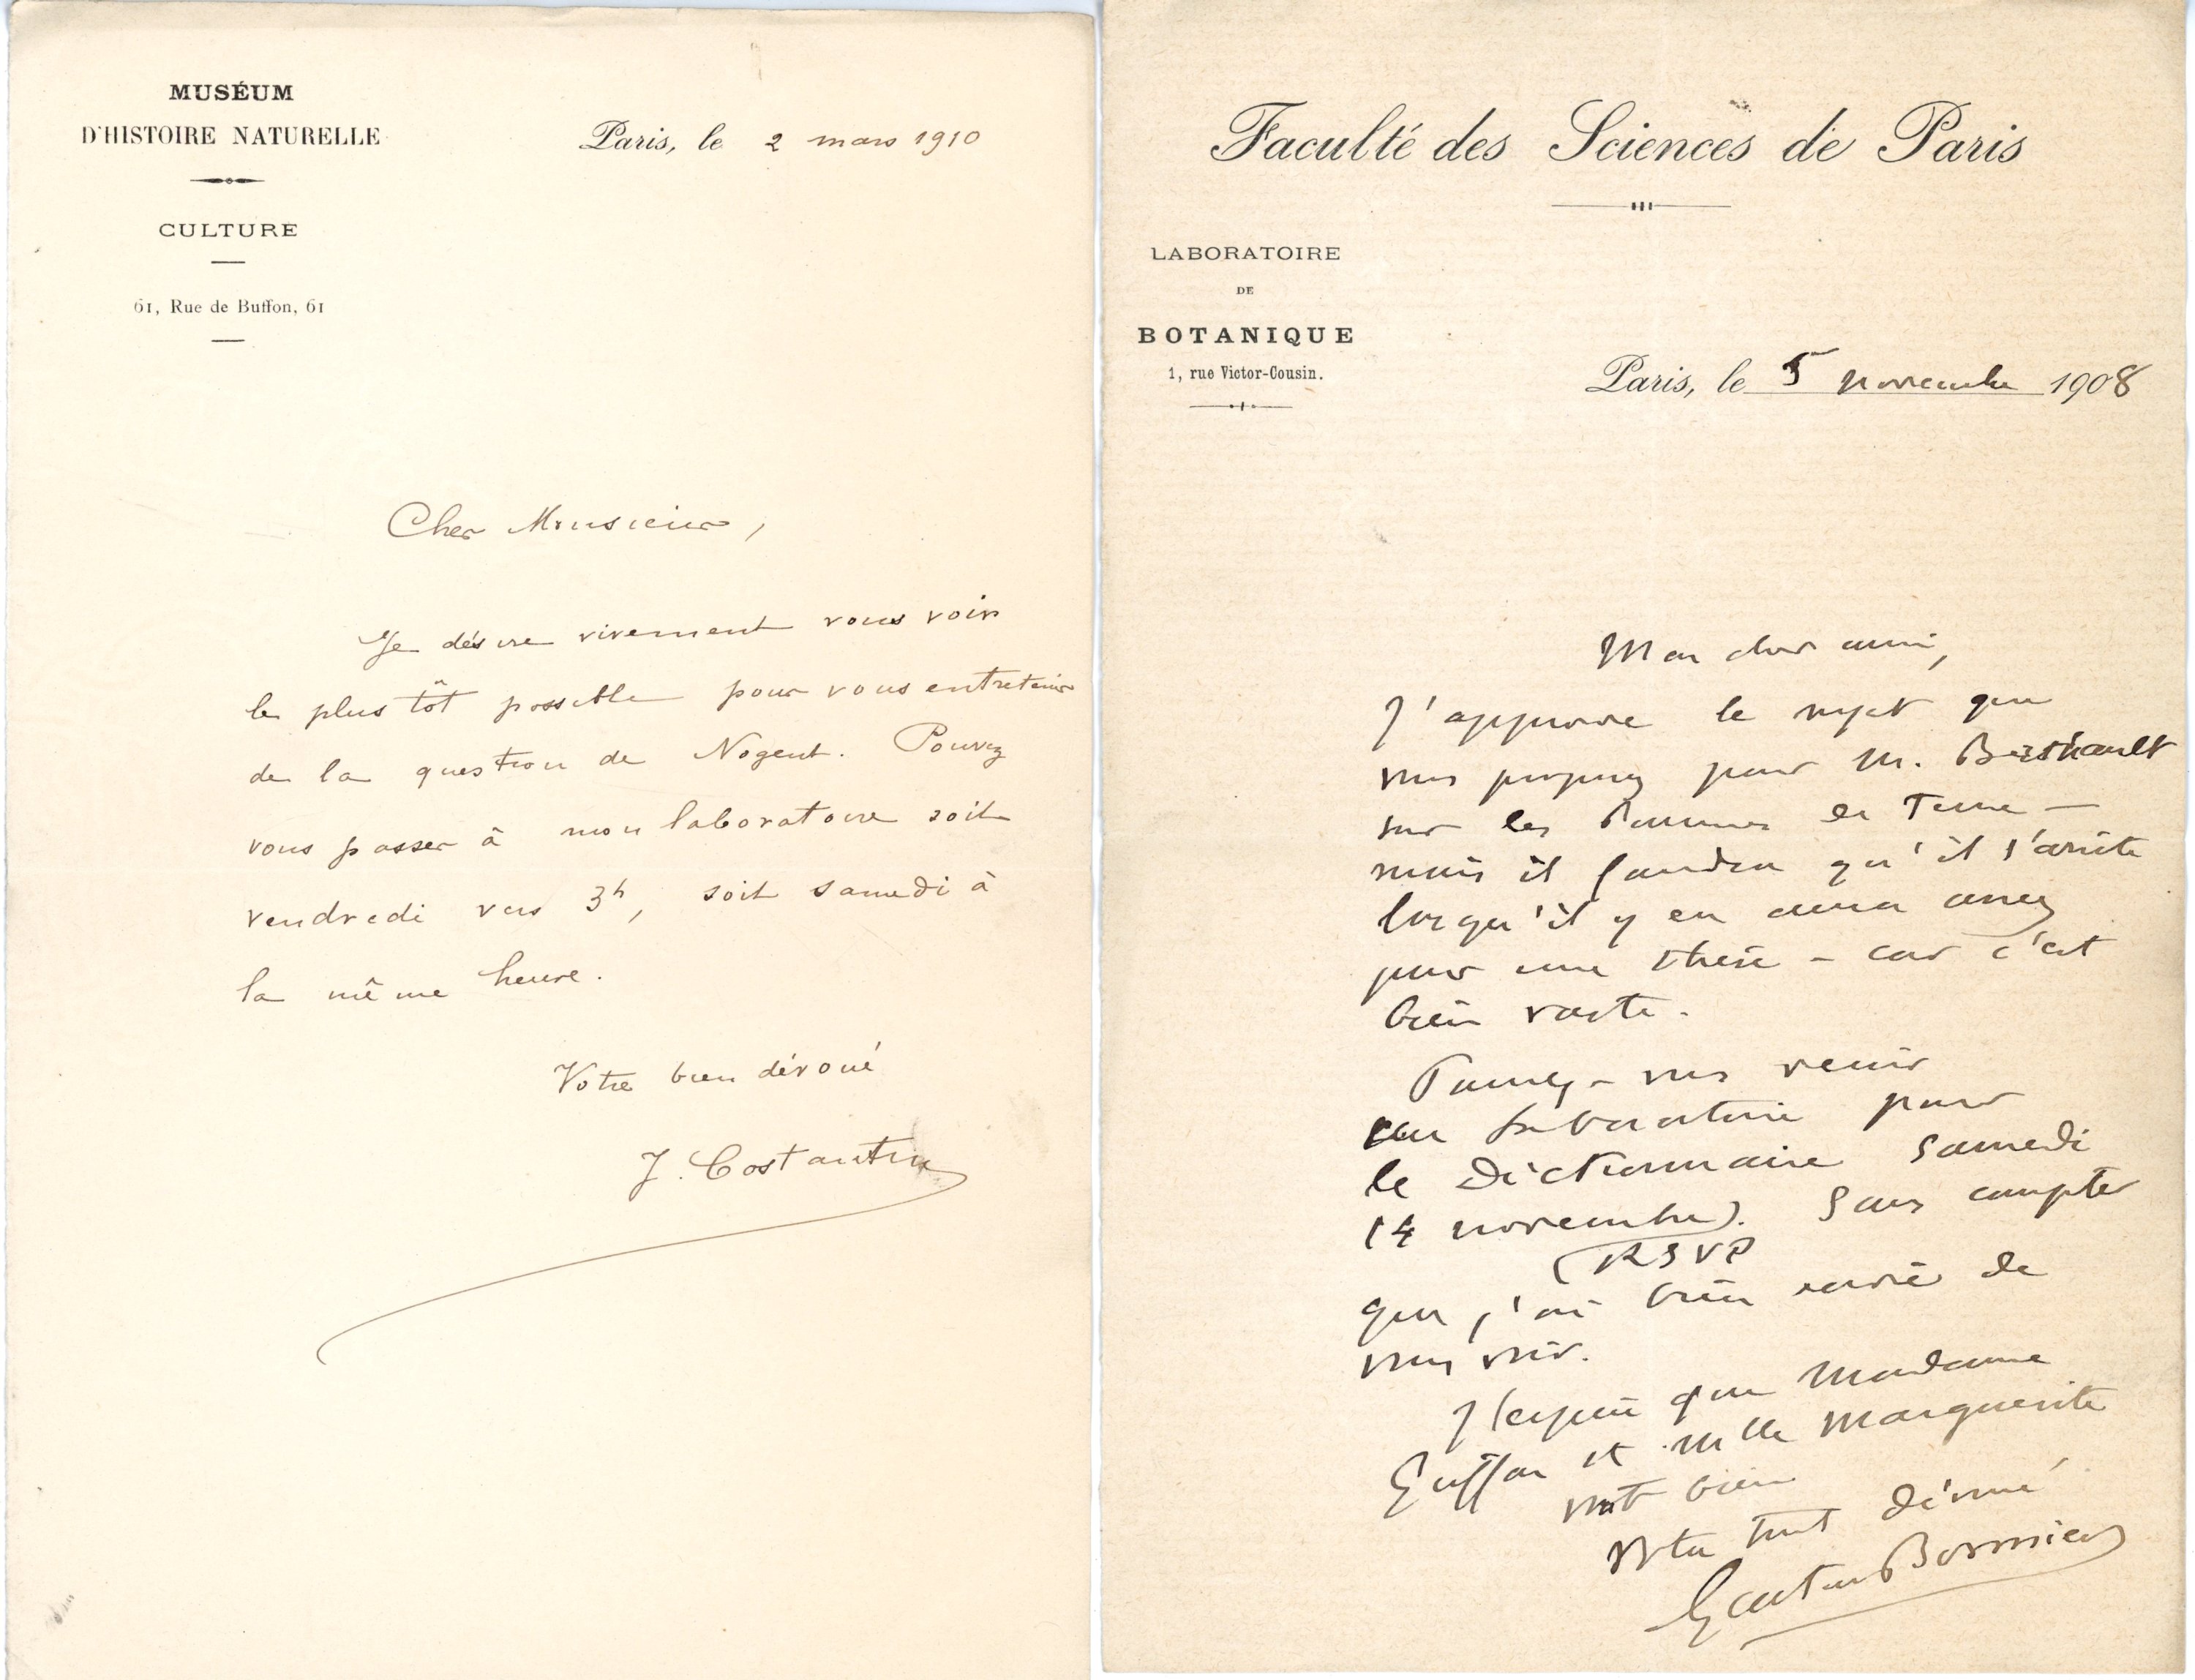 MUSÉUM
D'HISTOIRE NATURELLE
CULTURE
61, Rue de Buffon, 61
Paris, le 2 mars 1910
Cher Monsieur,
Je désire vivement vous voir
le plus tôt possible pour vous entretenir
de la question de Nogent. Pouvez
vous passer à mon laboratoire soit
vendredi vers 3h, soit samedi à
la même heure.
Votre bien dévoué
J. Costantin
Faculté des Sciences de Paris
LABORATOIRE
DE
BOTANIQUE
1, rue Victor-Cousin.
Paris, le 5 novembre 1908
Mon cher ami,
J'approuve le sujet que
vous proposez pour M. Berthault
sur les Pommes de Terre —
mais il faudra qu'il s'arrête
lorsqu'il y en aura assez
pour une thèse – car c'est
bien vaste.
Pouvez-vous venir
au Laboratoire pour
le Dictionnaire samedi
14 novembre). Sans compter
(RSVP
que j'ai bien envie de
vous voir.
J'espère que Madame
et Mlle Marguerite
vont bien
Votre tout dévoué
Gaston Bonnier